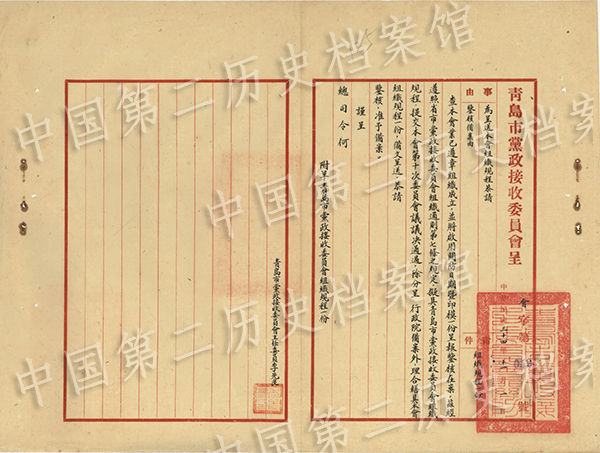 青島市黨政接收委員會呈
事由
為呈送本會組織規程恭請
鑒核備案由
附件
組織規程
查本會業已遵章組織成立，並將啟用關防日期暨印模一份呈報鑒核在案，茲經
遵照省市黨政接收委員會組織通則第七條之規定，擬具青島市黨政接收委員會組織
規程，提交本會第十次委員會議議決通過，除分呈 行政院備案外，理合繕具本會
組織規程一份，備文呈送，恭請
鑒核，准予備案。
謹呈
總司令何
附呈青島市黨政接收委員會組織規程一份
青島市黨政接收委員會主任委員李先良
中国第二历史档案馆